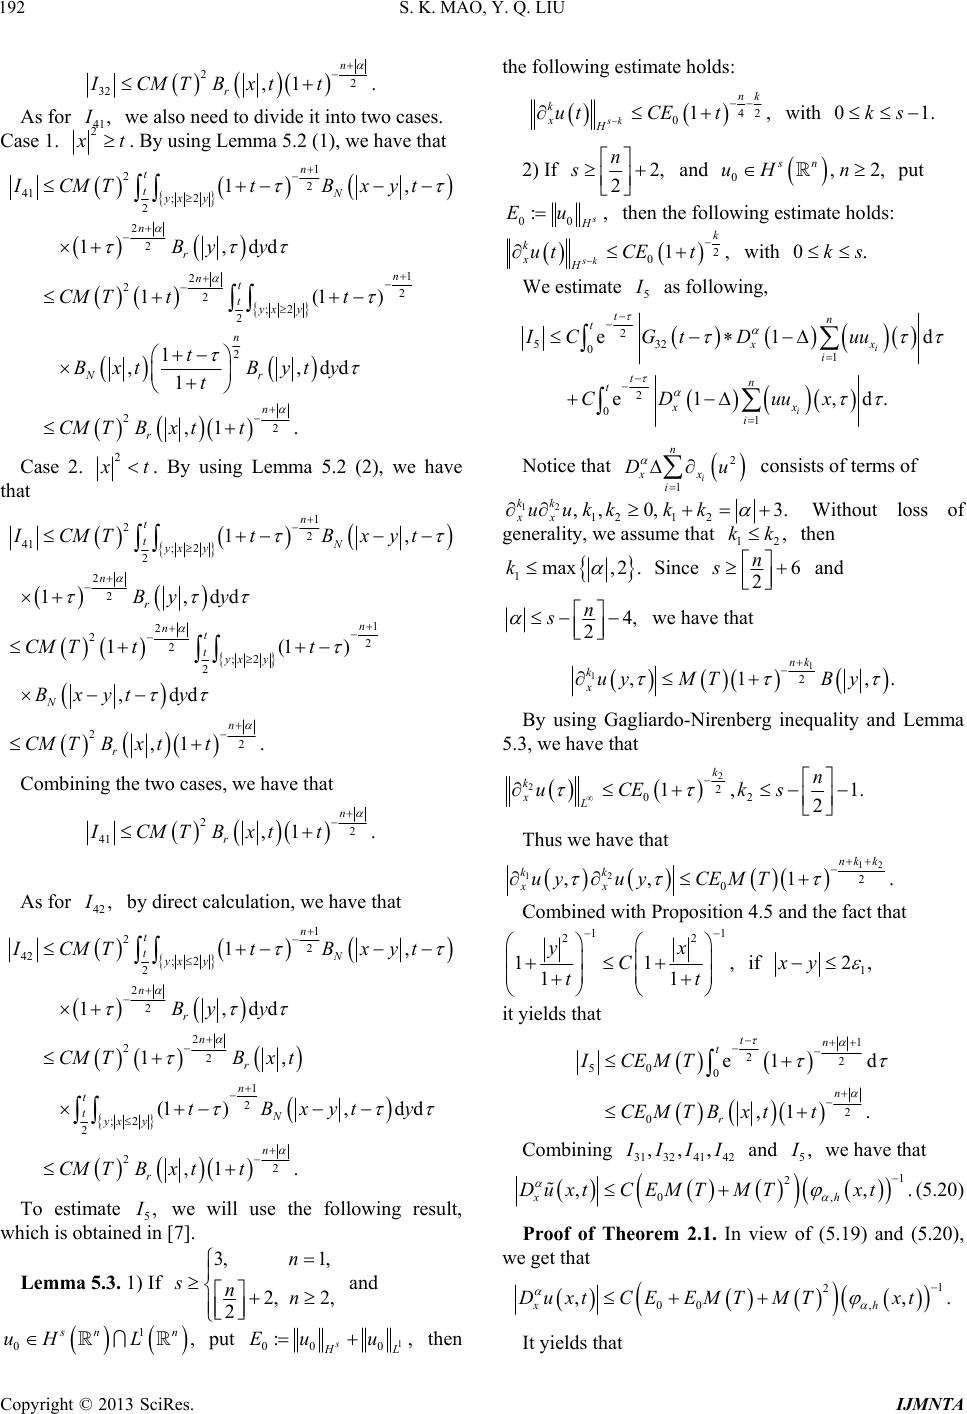 192
S. K. MAO, Y. Q. LIU
I_{32} ≤ CM(T)^2 B_r(|x|,t)(1+t)^{-\frac{n+|α|}{2}}.
As for I_{41}, we also need to divide it into two cases.
Case 1. |x|^2 ≥ t. By using Lemma 5.2 (1), we have that
I_{41} ≤ CM(T)^2 ∫_{\frac{t}{2}}^{t} ∫_{\{y;|x|≥2|y|\}} (1+t-τ)^{-\frac{n+1}{2}} B_N(|x-y|,t-τ)
×(1+τ)^{-\frac{2n+|α|}{2}} B_r(|y|,τ)dydτ
≤ CM(T)^2 (1+t)^{-\frac{2n+|α|}{2}} ∫_{\frac{t}{2}}^{t} ∫_{\{y;|x|≥2|y|\}} (1+t-τ)^{-\frac{n+1}{2}}
×B_N(|x|,t)(\frac{1+t-τ}{1+t})^{\frac{n}{2}} B_r(|y|,t)dydτ
≤ CM(T)^2 B_r(|x|,t)(1+t)^{-\frac{n+|α|}{2}}.
Case 2. |x|^2 < t. By using Lemma 5.2 (2), we have
that
I_{41} ≤ CM(T)^2 ∫_{\frac{t}{2}}^{t} ∫_{\{y;|x|≥2|y|\}} (1+t-τ)^{-\frac{n+1}{2}} B_N(|x-y|,t-τ)
×(1+τ)^{-\frac{2n+|α|}{2}} B_r(|y|,τ)dydτ
≤ CM(T)^2 (1+t)^{-\frac{2n+|α|}{2}} ∫_{\frac{t}{2}}^{t} ∫_{\{y;|x|≥2|y|\}} (1+t-τ)^{-\frac{n+1}{2}}
×B_N(|x-y|,t-τ)dydτ
≤ CM(T)^2 B_r(|x|,t)(1+t)^{-\frac{n+|α|}{2}}.
Combining the two cases, we have that
I_{41} ≤ CM(T)^2 B_r(|x|,t)(1+t)^{-\frac{n+|α|}{2}}.
As for I_{42}, by direct calculation, we have that
I_{42} ≤ CM(T)^2 ∫_{\frac{t}{2}}^{t} ∫_{\{y;|x|≤2|y|\}} (1+t-τ)^{-\frac{n+1}{2}} B_N(|x-y|,t-τ)
×(1+τ)^{-\frac{2n+|α|}{2}} B_r(|y|,τ)dydτ
≤ CM(T)^2 (1+τ)^{-\frac{2n+|α|}{2}} B_r(|x|,t)
×∫_{\frac{t}{2}}^{t} ∫_{\{y;|x|≤2|y|\}} (1+t-τ)^{-\frac{n+1}{2}} B_N(|x-y|,t-τ)dydτ
≤ CM(T)^2 B_r(|x|,t)(1+t)^{-\frac{n+|α|}{2}}.
To estimate I_5, we will use the following result,
which is obtained in [7].
Lemma 5.3. 1) If s ≥ { 3, n = 1, [\frac{n}{2}]+2, n ≥ 2, and
u_0 ∈ H^s(ℝ^n) ⋂ L^1(ℝ^n), put E_0 := ‖u_0‖_{H^s} + ‖u_0‖_{L^1}, then
the following estimate holds:
‖∂_x^k u(t)‖_{H^{s-k}} ≤ CE_0(1+t)^{-\frac{n}{4}-\frac{k}{2}}, with 0 ≤ k ≤ s-1.
2) If s ≥ [\frac{n}{2}]+2, and u_0 ∈ H^s(ℝ^n), n ≥ 2, put
E_0 := ‖u_0‖_{H^s}, then the following estimate holds:
‖∂_x^k u(t)‖_{H^{s-k}} ≤ CE_0(1+t)^{-\frac{k}{2}}, with 0 ≤ k ≤ s.
We estimate I_5 as following,
I_5 ≤ C∫_0^t e^{-\frac{t-τ}{2}} |G_{32}(t-τ) ∗ D_x^α(1-Δ)∑_{i=1}^n (uu_{x_i})(τ)|dτ
+C∫_0^t e^{-\frac{t-τ}{2}} |D_x^α(1-Δ)∑_{i=1}^n (uu_{x_i})(x,τ)|dτ.
Notice that D_x^α Δ∑_{i=1}^n ∂_{x_i}(u^2) consists of terms of
∂_x^{k_1}u∂_x^{k_2}u, k_1, k_2 ≥ 0, k_1 + k_2 = |α| + 3. Without loss of
generality, we assume that k_1 ≤ k_2, then
k_1 ≤ max{|α|,2}. Since s ≥ [\frac{n}{2}]+6 and
|α| ≤ s-[\frac{n}{2}]-4, we have that
|∂_x^{k_1}u(y,τ)| ≤ M(T)(1+τ)^{-\frac{n+k_1}{2}} B(|y|,τ).
By using Gagliardo-Nirenberg inequality and Lemma
5.3, we have that
‖∂_x^{k_2}u(τ)‖_{L^∞} ≤ CE_0(1+τ)^{-\frac{k_2}{2}}, k_2 ≤ s-[\frac{n}{2}]-1.
Thus we have that
|∂_x^{k_1}u(y,τ)∂_x^{k_2}u(y,τ)| ≤ CE_0M(T)(1+τ)^{-\frac{n+k_1+k_2}{2}}.
Combined with Proposition 4.5 and the fact that
(1+\frac{|y|^2}{1+t})^{-1} ≤ C(1+\frac{|x|^2}{1+t})^{-1}, if |x-y| ≤ 2ε_1,
it yields that
I_5 ≤ CE_0M(T)∫_0^t e^{-\frac{t-τ}{2}}(1+τ)^{-\frac{n+|α|+1}{2}}dτ
≤ CE_0M(T)B_r(|x|,t)(1+t)^{-\frac{n+|α|}{2}}.
Combining I_{31}, I_{32}, I_{41}, I_{42} and I_5, we have that
|D_x^α ũ(x,t)| ≤ C(E_0M(T)+M(T)^2)(φ_{α,h}(x,t))^{-1}. (5.20)
Proof of Theorem 2.1. In view of (5.19) and (5.20),
we get that
|D_x^α u(x,t)| ≤ C(E_0+E_0M(T)+M(T)^2)(φ_{α,h}(x,t))^{-1}.
It yields that
Copyright © 2013 SciRes.
IJMNTA